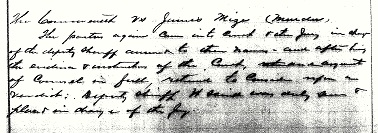 The Commonwealth vs James Mize (Murder)
The parties again came into Court & the Jury in charge
of the deputy Sheriff answered to their names - and after hearing
the evidence & instructions of the Court, & argument
of Counsel in full, retired to consider upon a
verdict; Deputy Sheriff H was duly sworn &
placed in charge of the Jury